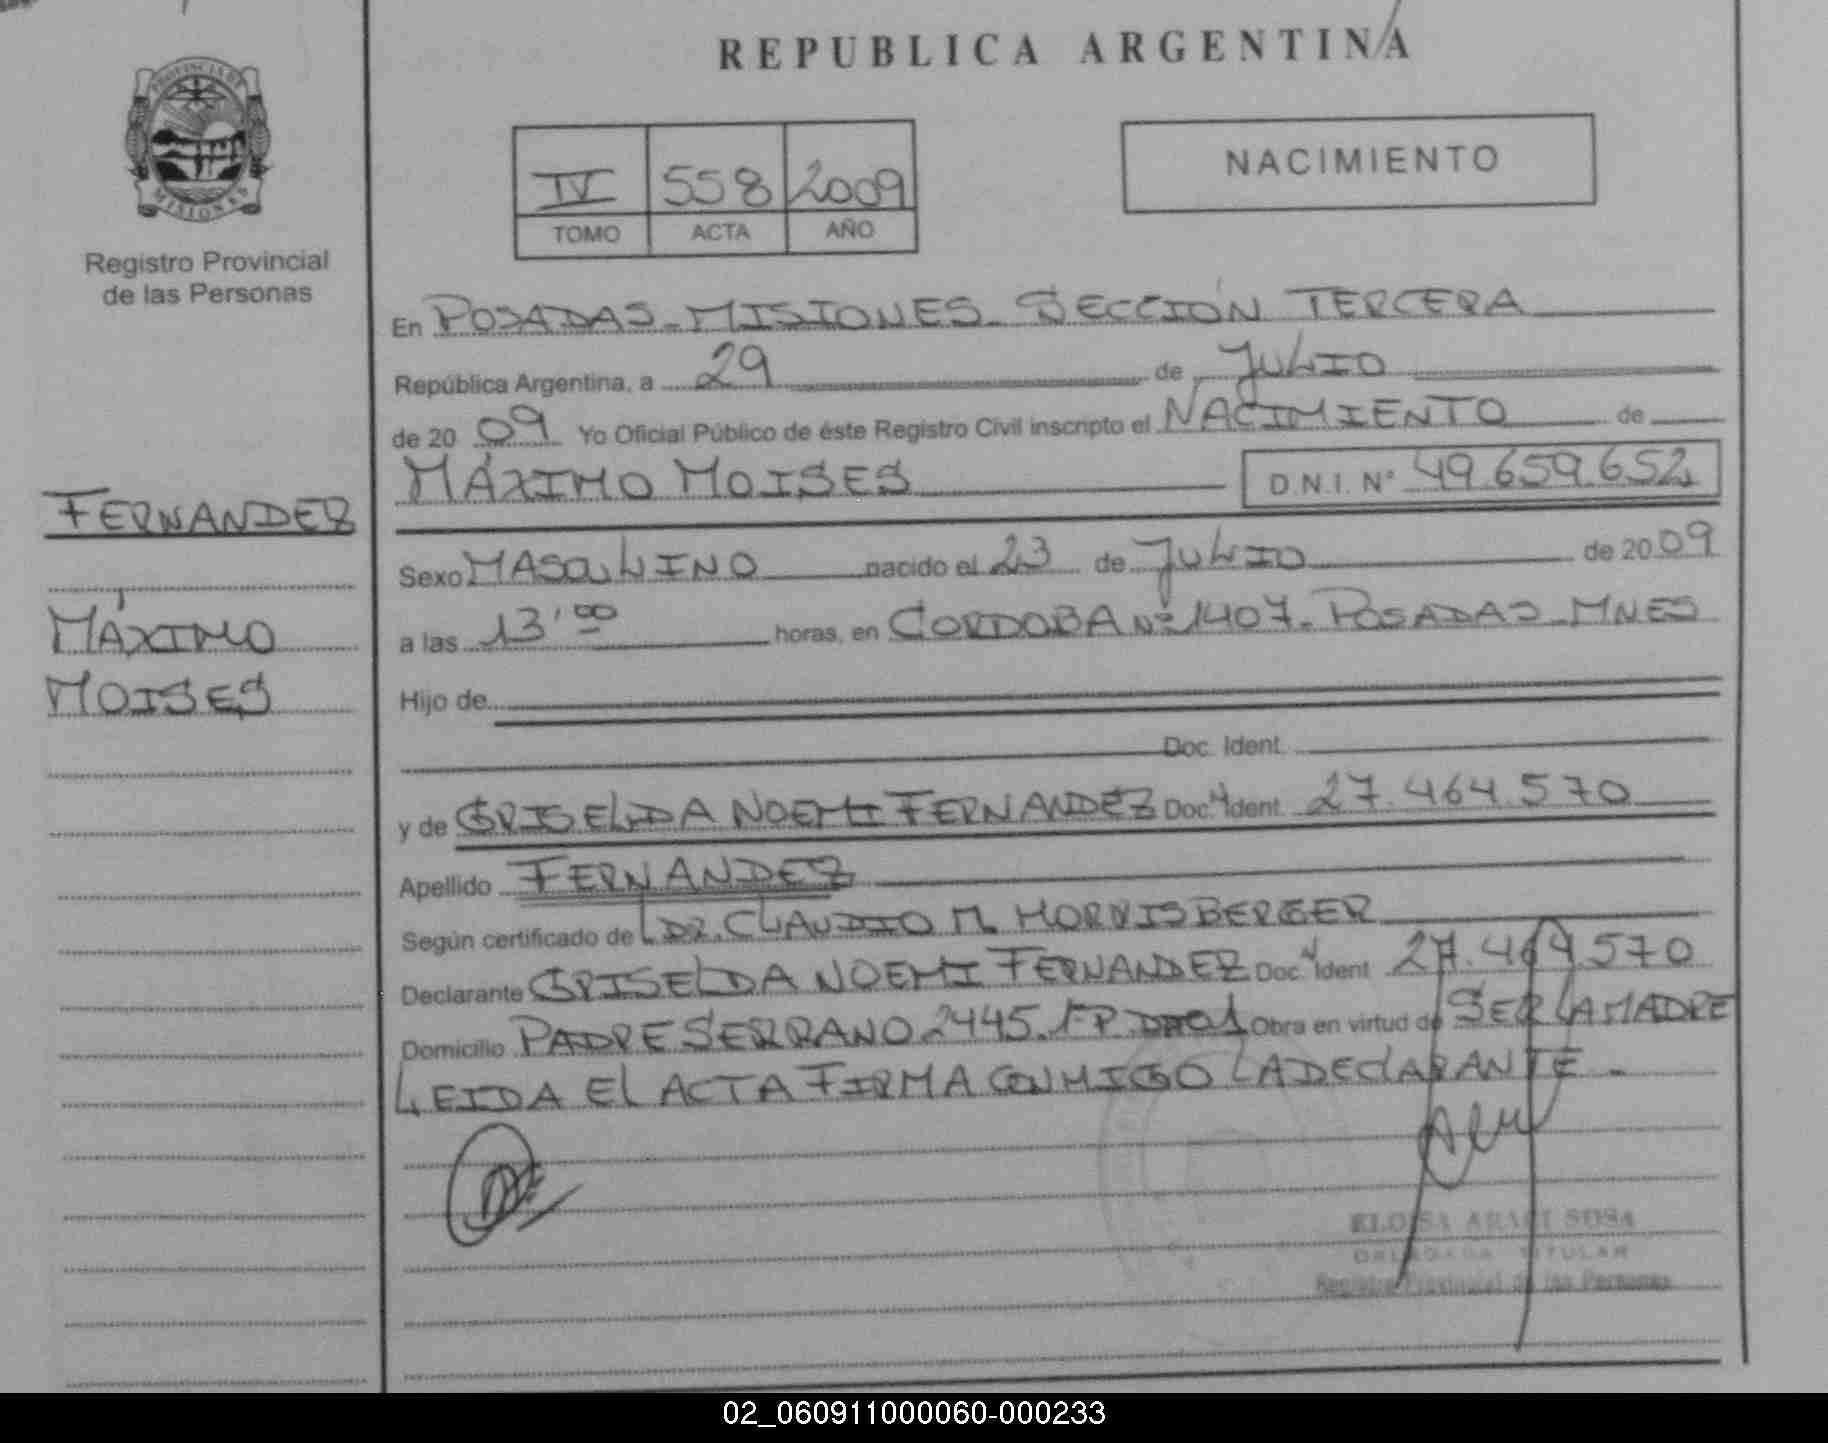 REPUBLICA ARGENTINA
PROVINCIA DE
MISIONES
Registro Provincial
de las Personas
IV 558 2009
TOMO ACTA AÑO
NACIMIENTO
En POSADAS-MISIONES-SECCIÓN TERCERA
República Argentina, a 29 de JULIO
de 20 09 Yo Oficial Público de éste Registro Civil inscripto el NACIMIENTO de
MÁXIMO MOISES D.N.I. N° 49.659.652
FERNANDEZ
MÁXIMO
MOISES
Sexo MASCULINO nacido el 23 de JULIO de 20 09
a las 13'00 horas, en CORDOBA N° 1407-POSADAS-MNES
Hijo de
Doc. Ident.
y de GRISELDA NOEMI FERNANDEZ Doc. Ident. 27.464.570
Apellido FERNANDEZ
Según certificado de DR. CLAUDIO M. HORRISBERGER
Declarante GRISELDA NOEMI FERNANDEZ Doc. Ident 27.464.570
Domicilio PADRE SERRANO 2445. 1°P. DTO 1 Obra en virtud de SER LA MADRE
LEIDA EL ACTA FIRMA CONMIGO LA DECLARANTE-
ELOISA ARACI SOSA
DELEGADA TITULAR
Registro Provincial de las Personas
02_060911000060-000233